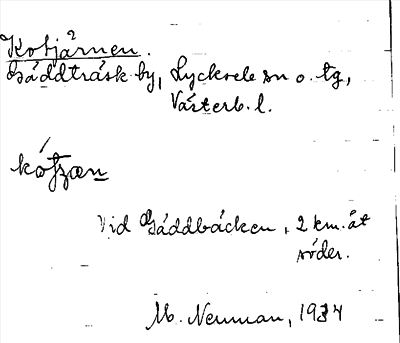 Kotjärnen.
Gäddträsk by, Lycksele sn o. tg,
Västerb. l.
kótzæn
Vid Gäddbäcken, 2 km. åt
söder.
M. Neuman, 1934